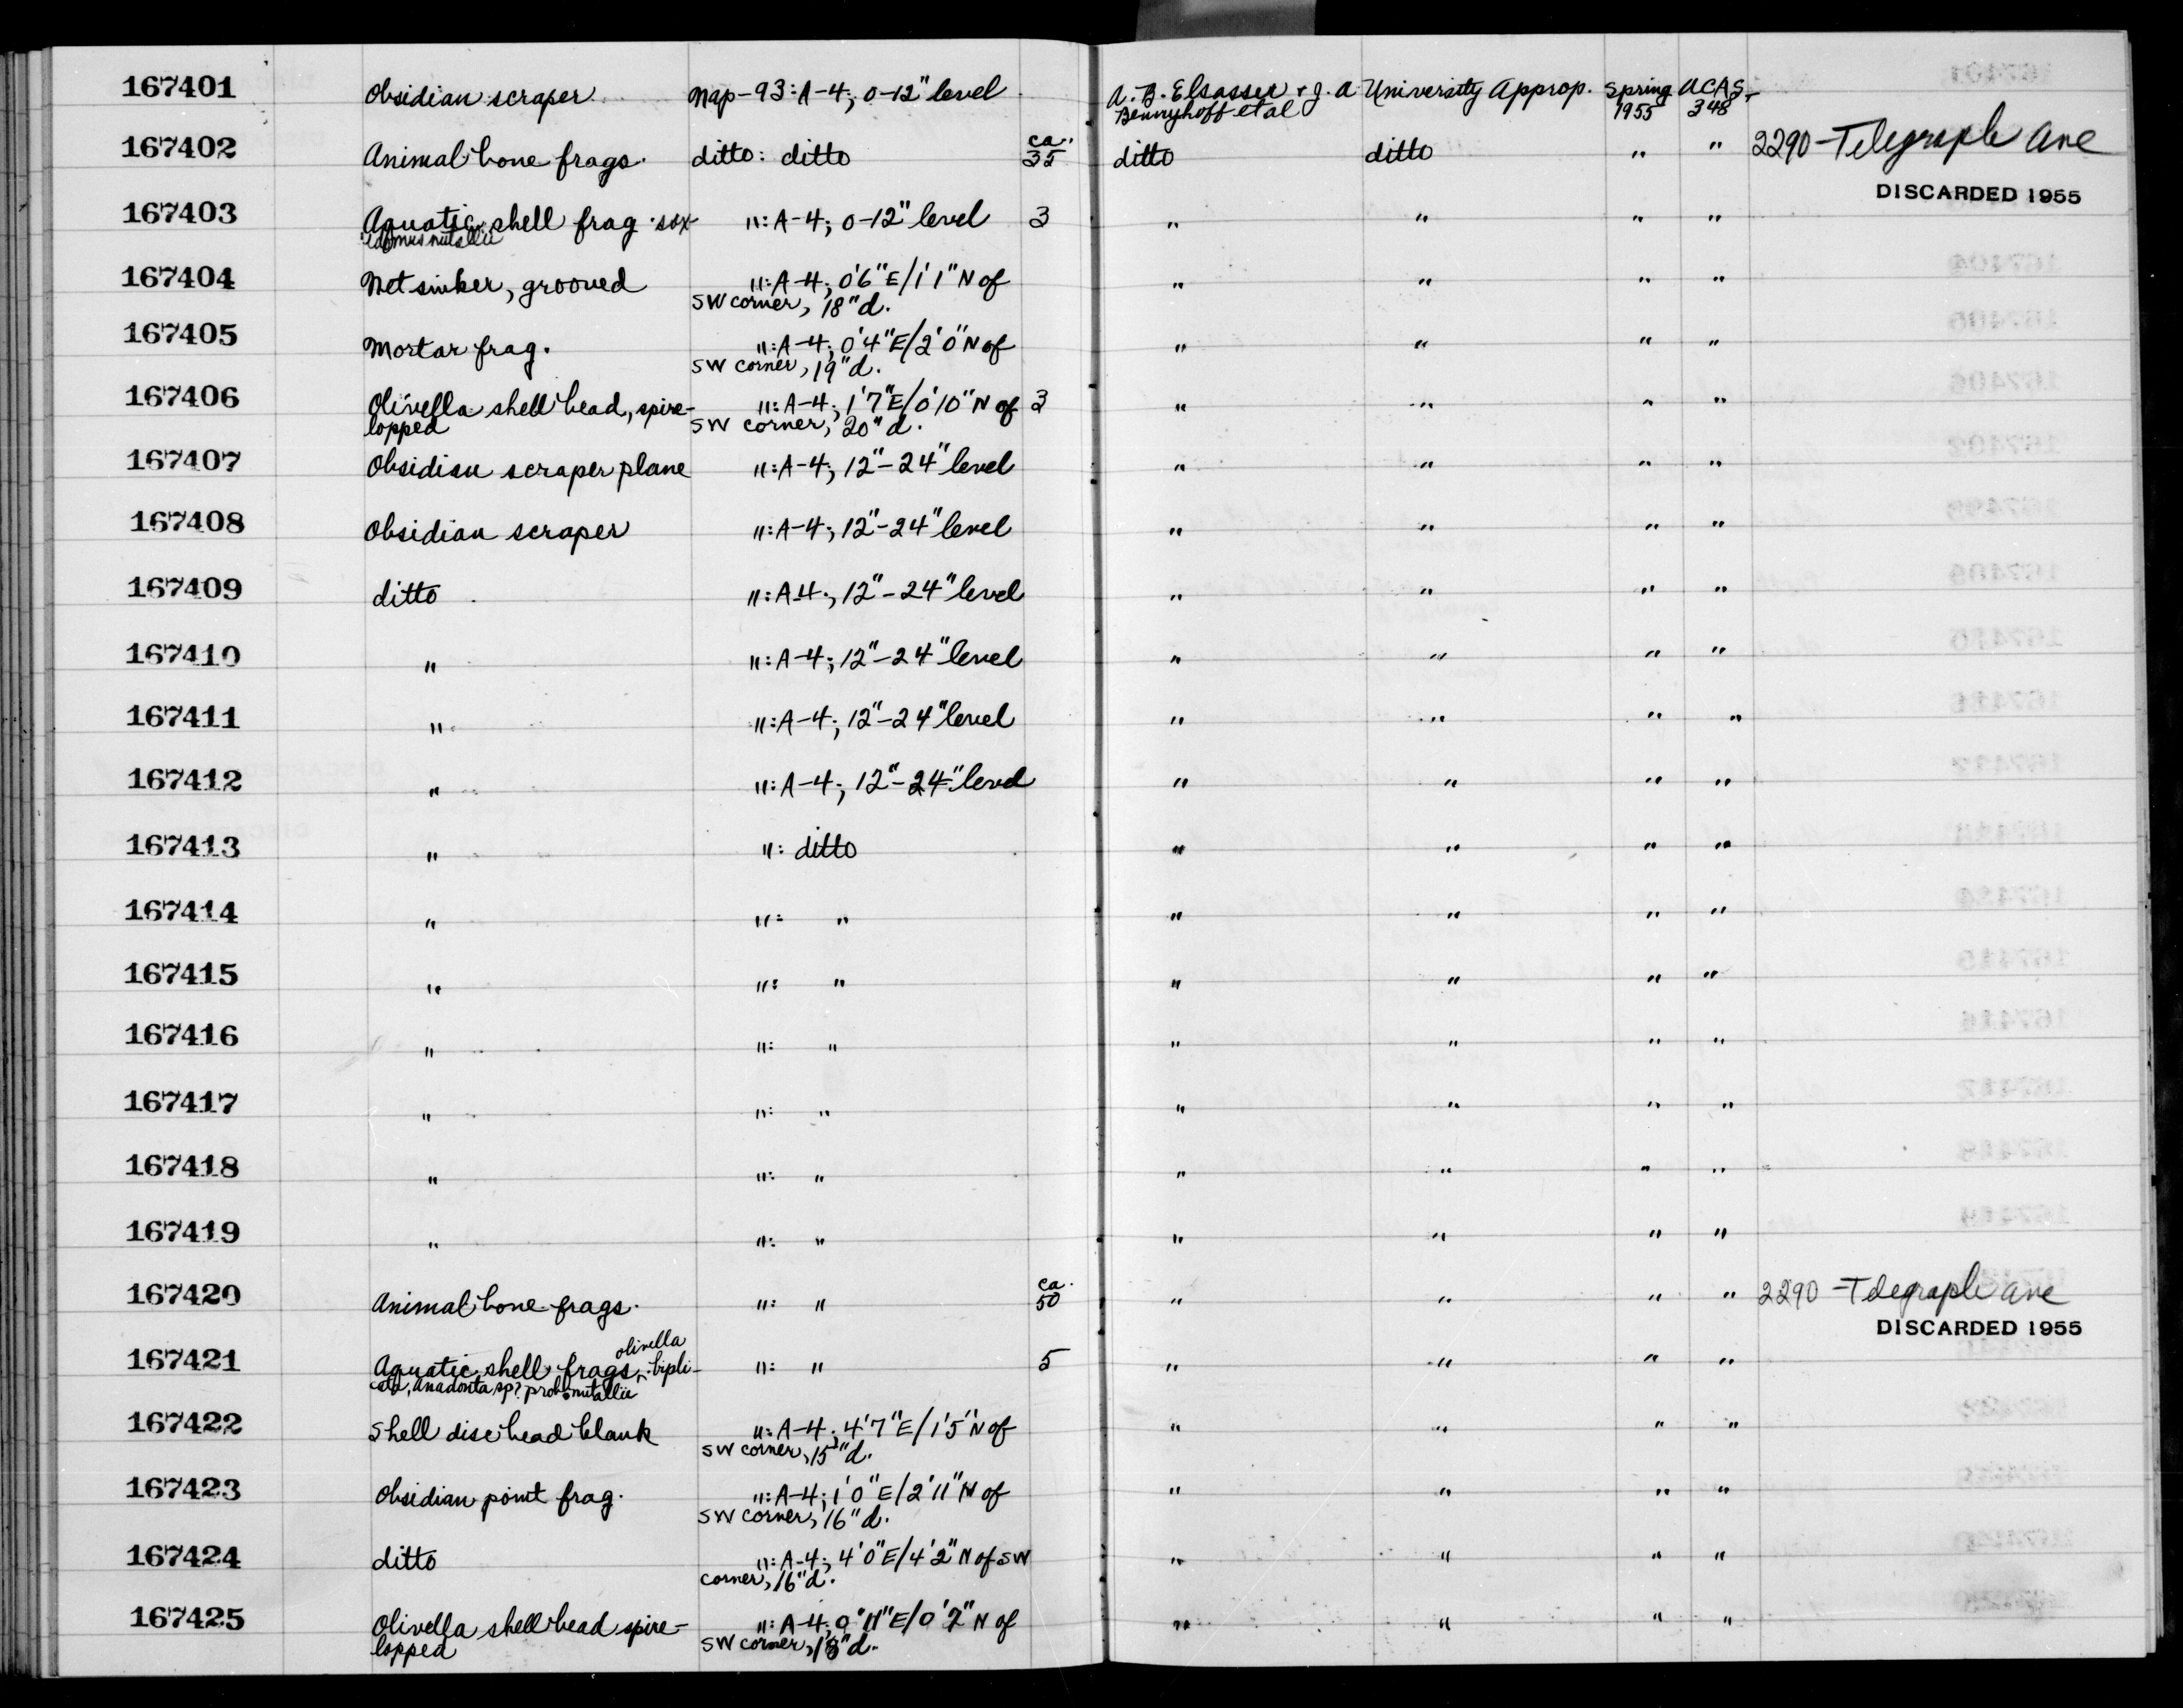 167401 Obsidian scraper Nap-93: A-4; 0-12" level A. B. Elsasser + J. A. University Approp. Spring UCAS-
Bennyhoff et al 1955 348
167402 Animal bone frags. ditto: ditto ca. 35 ditto ditto " " 2290 Telegraph Ave
DISCARDED 1955
167403 Aquatic shell frag. sax- ": A-4; 0-12" level 3 " " " "
idomus nutallii
167404 Net sinker, grooved ": A-4; 0'6"E/1'1"N of " " " "
SW corner, 18"d.
167405 Mortar frag. ": A-4; 0'4"E/2'0"N of " " " "
SW corner, 19"d.
167406 Olivella shell bead, spire- ": A-4; 1'7"E/0'10"N of 3 " " " "
lopped SW corner, 20"d.
167407 Obsidian scraper plane ": A-4; 12"-24" level " " " "
167408 Obsidian scraper ": A-4; 12"-24" level " " " "
167409 ditto ": A-4; 12"-24" level " " " "
167410 " ": A-4; 12"-24" level " " " "
167411 " ": A-4; 12"-24" level " " " "
167412 " ": A-4; 12"-24" level " " " "
167413 " ": ditto " " " "
167414 " ": " " " " "
167415 " ": " " " " "
167416 " ": " " " " "
167417 " ": " " " " "
167418 " ": " " " " "
167419 " ": " " " " "
167420 Animal bone frags. ": " ca. 50 " " " " 2290 Telegraph Ave
DISCARDED 1955
167421 Aquatic shell frags, olivella bipli- ": " 5 " " " "
cata, Anadonta sp? prob. nutallii
167422 Shell disc bead blank ": A-4; 4'7"E/1'5"N of " " " "
SW corner, 15"d.
167423 Obsidian point frag. ": A-4; 1'0"E/2'11"N of " " " "
SW corner, 16"d.
167424 ditto ": A-4; 4'0"E/4'2"N of SW " " " "
corner, 16"d.
167425 Olivella shell bead spire- ": A-4; 0'11"E/0'2"N of " " " "
lopped SW corner,